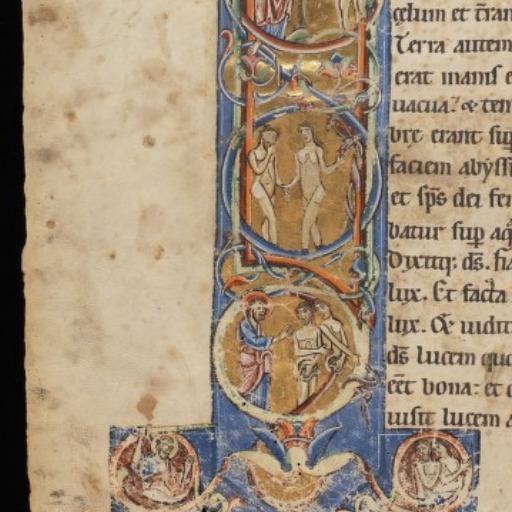 cęlum et t̄ram
Terra autem
erat inanis e
uacua:̓ & ten
brę erant sup̄
faciem abyssi
et sp̄s dei fer
batur sup̄ aq̄
Dixitq;. ds̄. fia
lux. Et facta
lux. & uidit
ds̄ lucem quod
eēt bona: et d
uisit lucem a